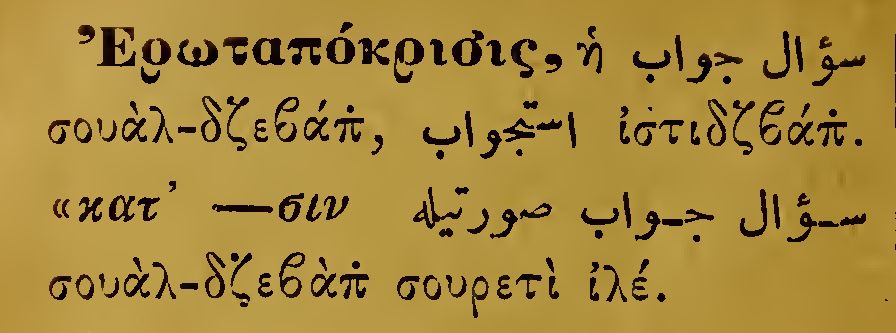 Ἐρωταπόκρισις, ἡ سؤال جواب
σουὰλ-δζεβάπ̇, استجواب ἰσ̇τιδζβάπ̇.
«κατ’ —σιν سؤال جواب صورتيله
σουὰλ-δζ̇εβὰπ̇ σουρετὶ ἰλέ.